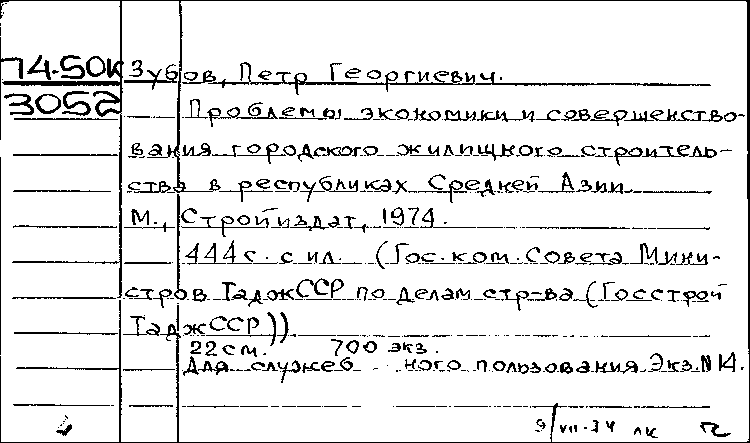 74-50к Зубов, Петр Георгиевич.
3052 Проблемы экономики и совершенство-
вания городского жилищного строитель-
ства в республиках Средней Азии.
М., Стройиздат, 1974.
444 с. с ил. (Гос. ком. Совета Мини-
стров ТаджССР по делам стр-ва (Госстрой
ТаджССР)).
22 см. 700 экз.
Для служеб ного пользования Экз. N 14.